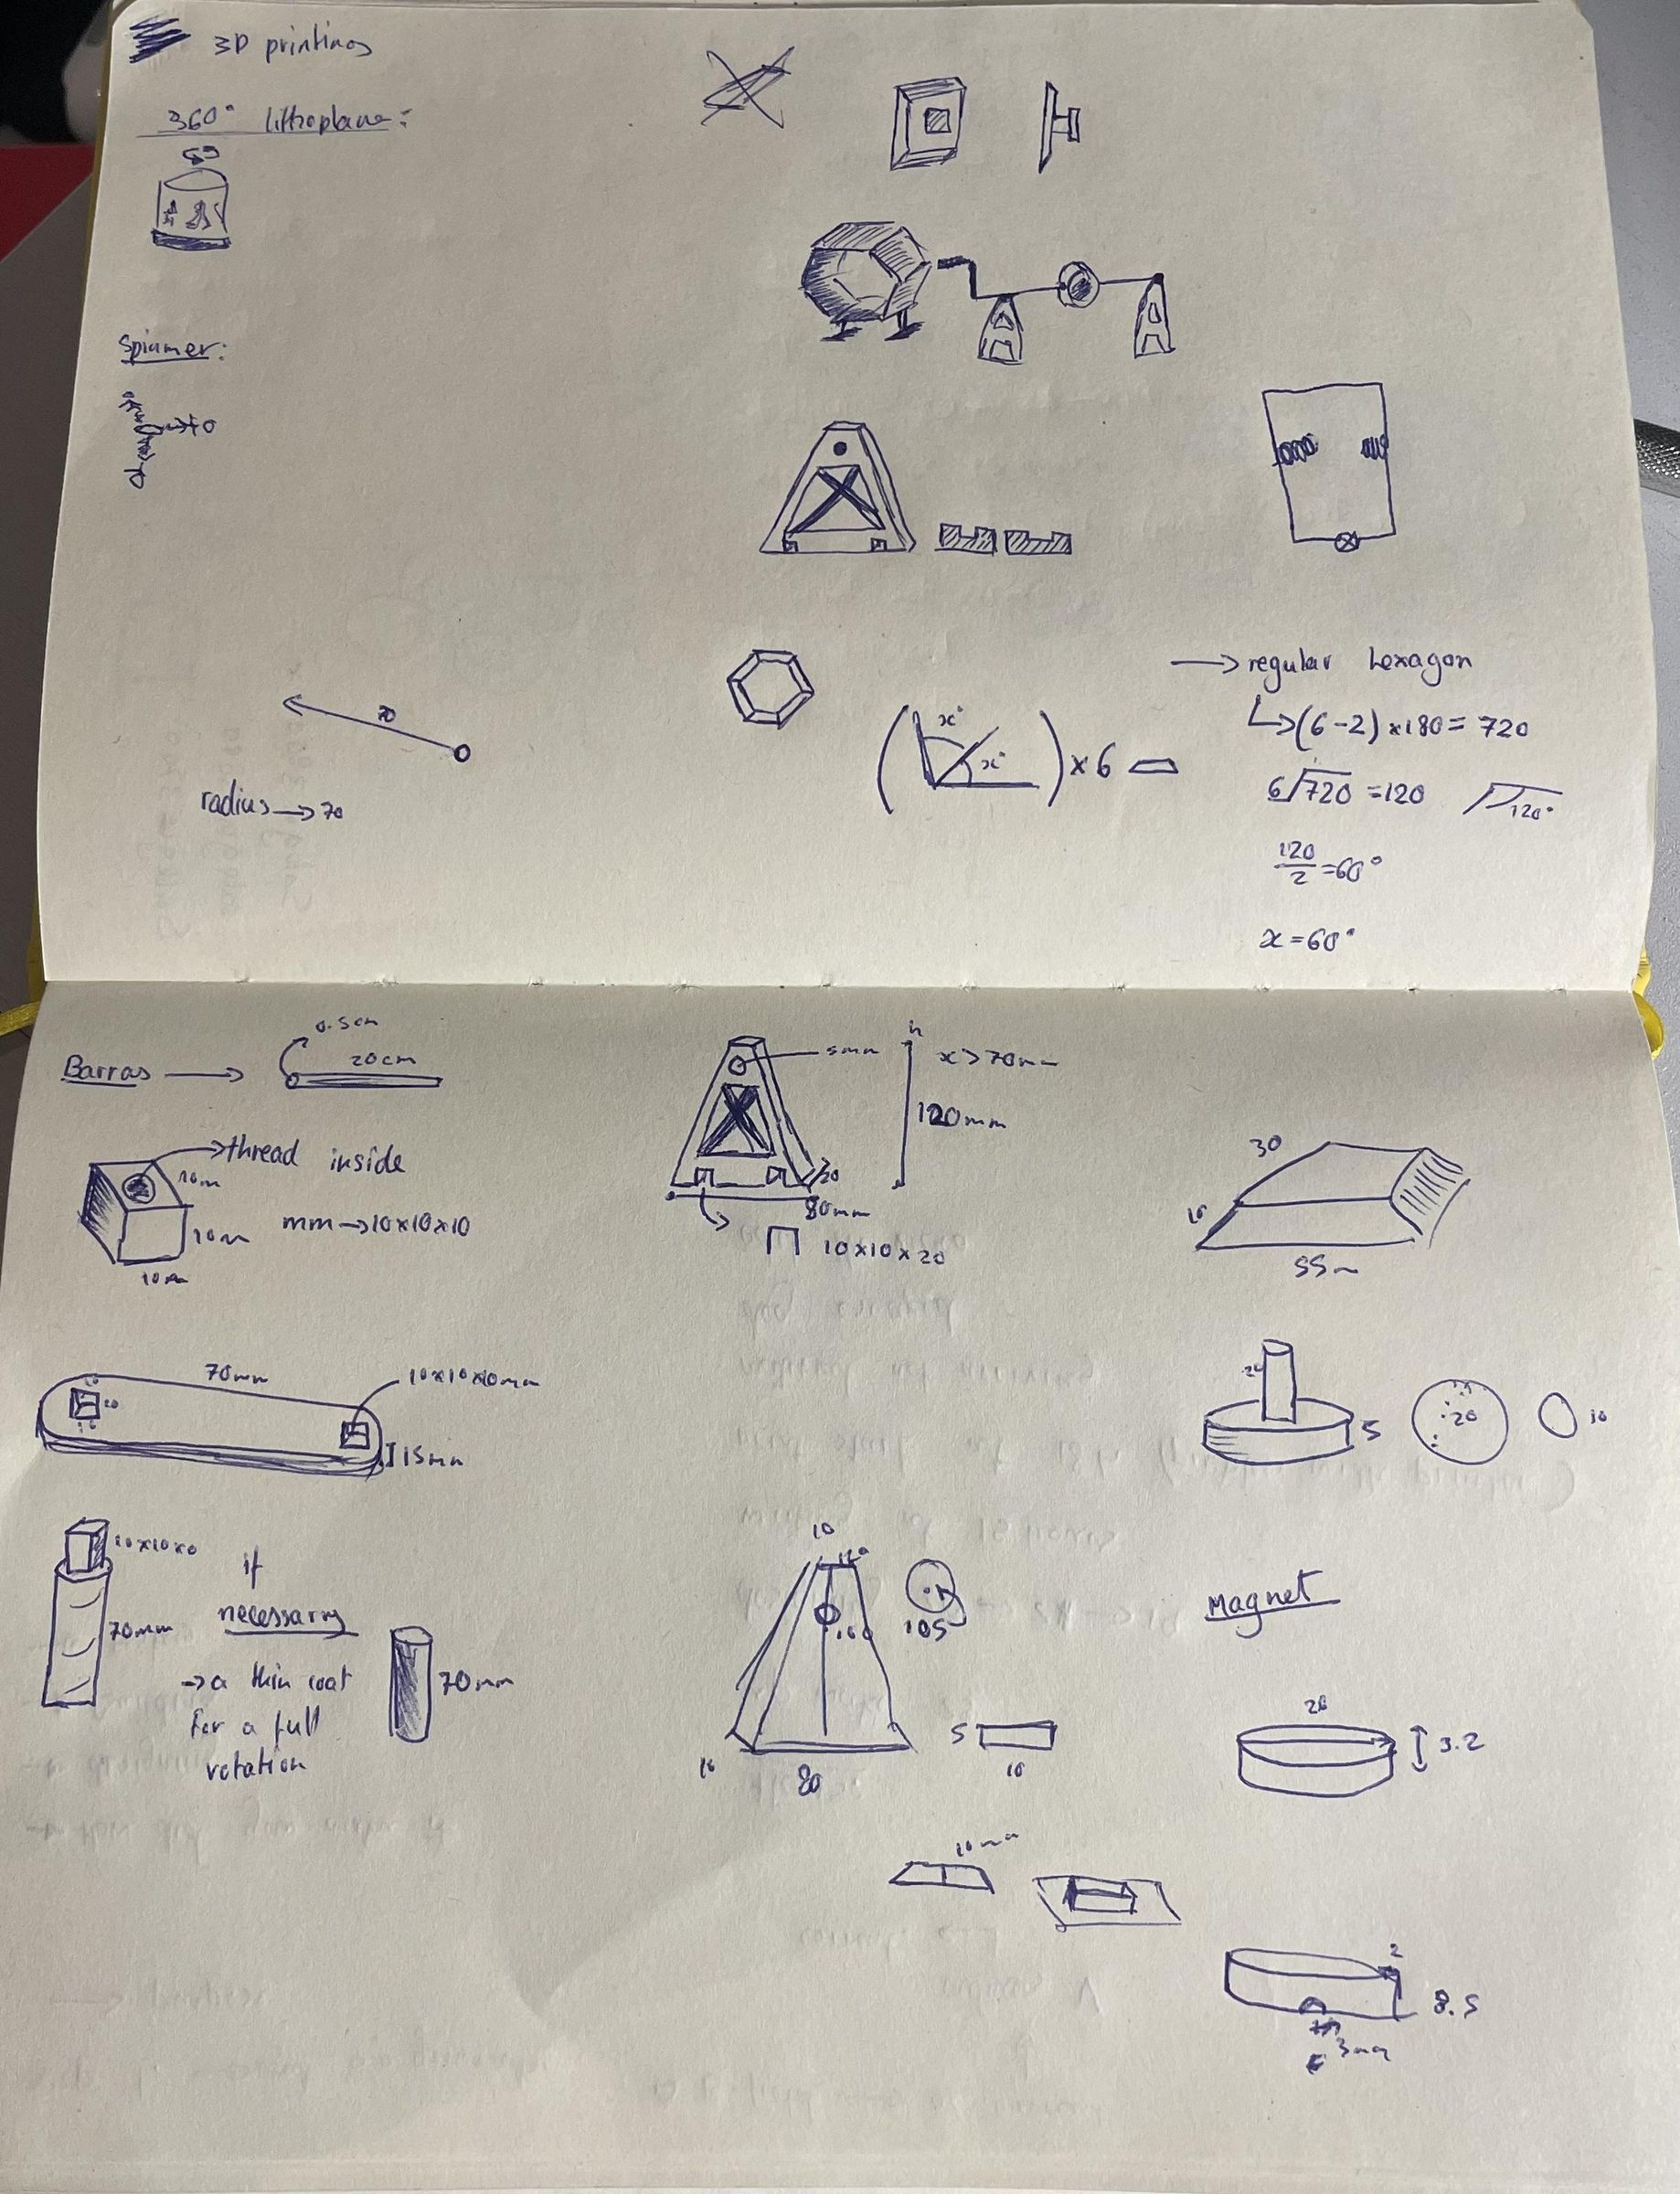 3D printings
360° lithoplane:
Spinner:
70
radius → 70
x°
x°
× 6
→ regular hexagon
↳ (6-2) × 180 = 720
6√720 = 120
120°
120/2 = 60°
x = 60°
Barras →
0.5cm
20cm
→ thread inside
10m
10m
10m
mm → 10×10×10
70mm
10×10×10mm
15mm
10×10×10
70mm
if
necessary
→ a thin coat
for a full
rotation
70mm
5mm
h
x > 70mm
120mm
20
80mm
10×10×20
10
10
80
105
5
10
10mm
30
10
55m
5
20
10
Magnet
20
3.2
2
8.5
3mm